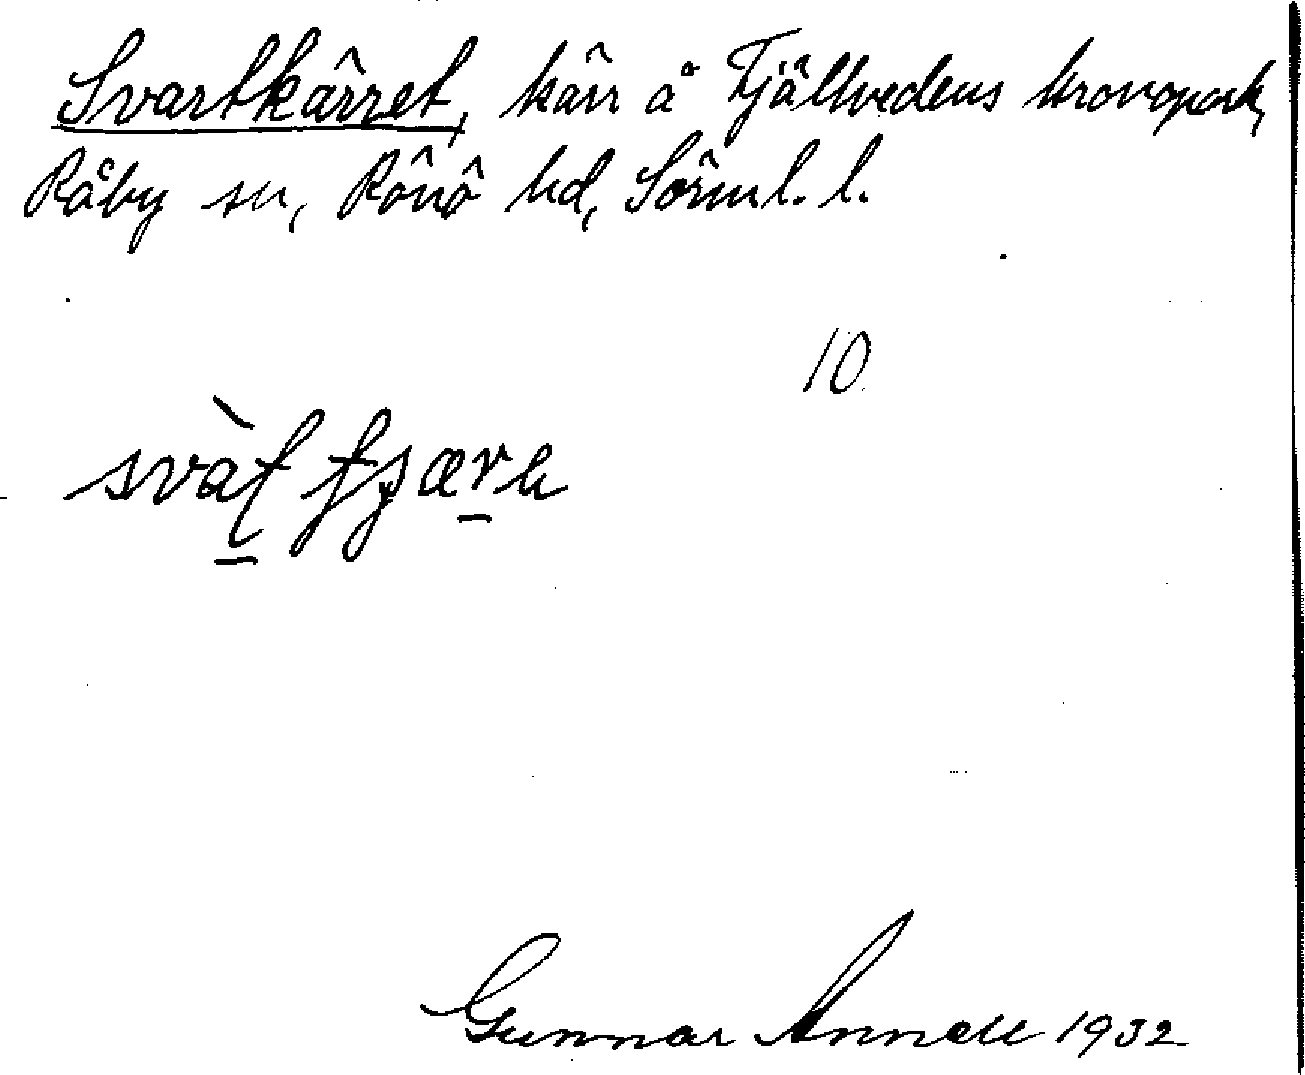 Svartkärret, kärr å Tjällvedens kronopark,
Råby sn, Rönö hd, Sörml. l.
10
Gunnar Annell 1932